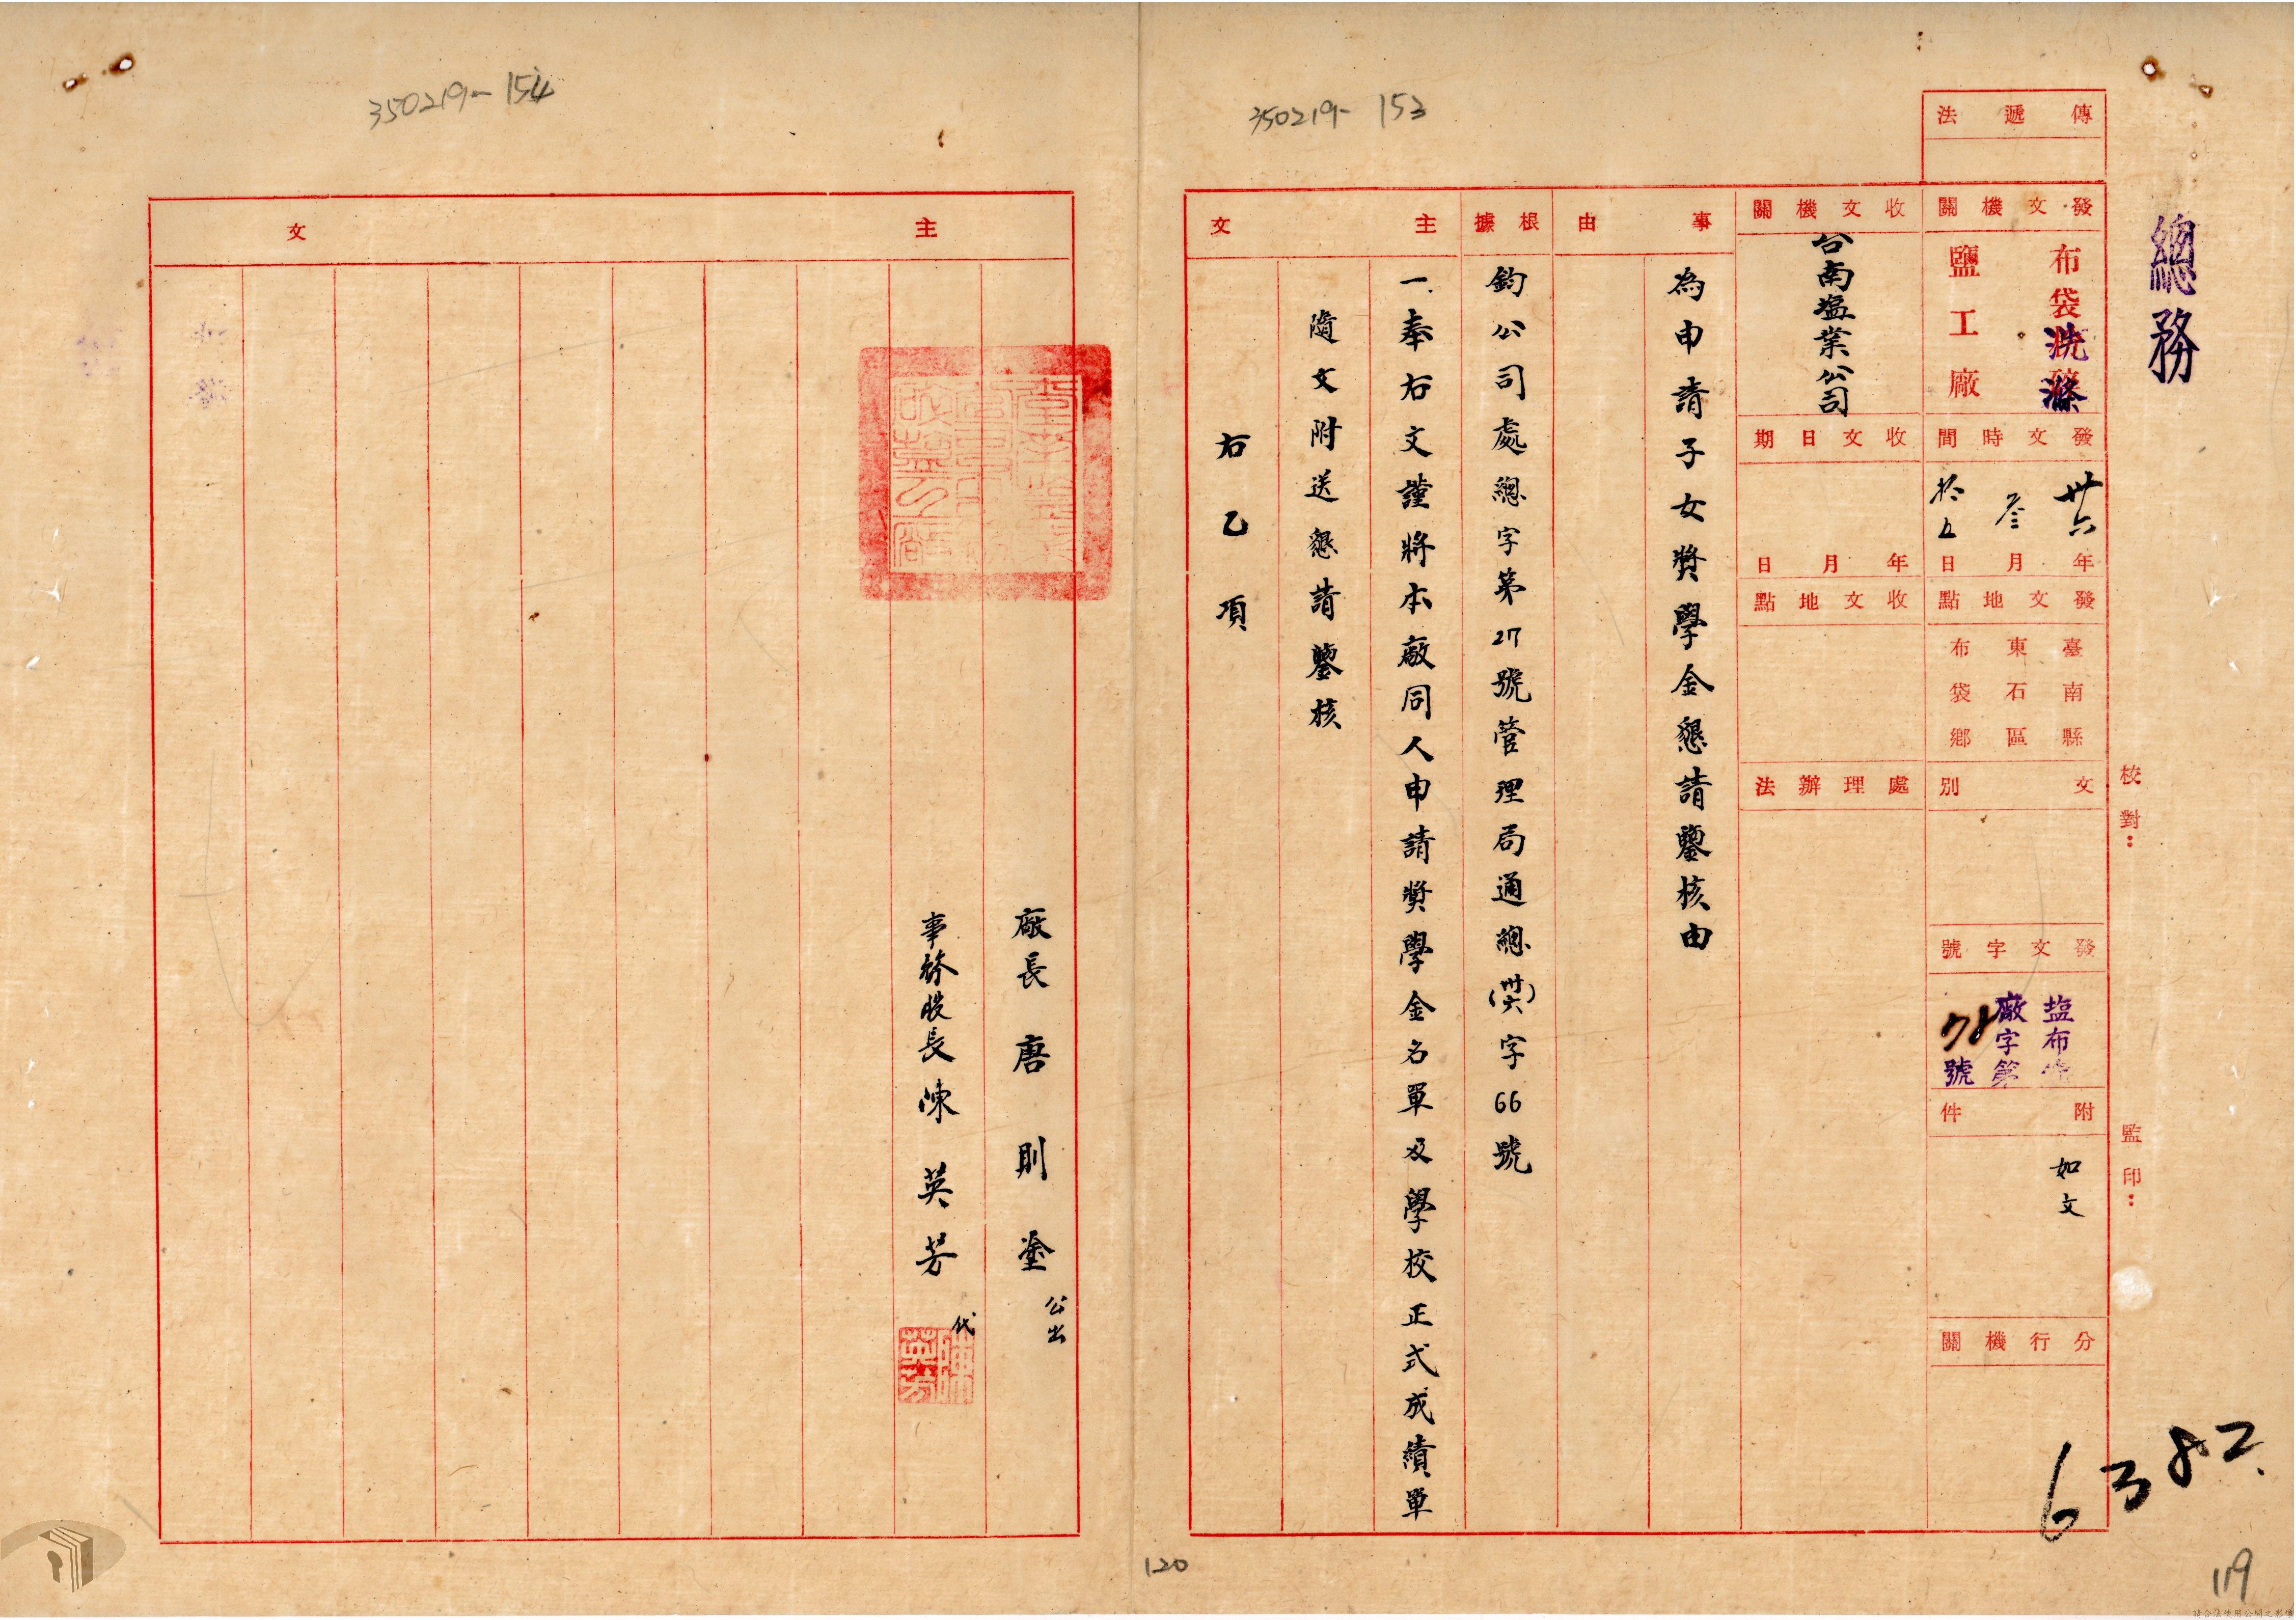 350219-153
350219-154
總務
傳遞法
發文機關
布袋洗滌
鹽工廠
發文時間
卅六年
叁月
拾五日
發文地點
臺南縣
東石區
布袋鄉
文別
發文字號
塩布
廠字第
78號
附件
如文
分行機關
校對：
監印：
收文機關
台南塩業公司
收文日期
年月日
收文地點
處理辦法
事由
為申請子女獎學金懇請鑒核由
根據
鈞公司處總字第27號管理局通總(卅六)字66號
主文
一.奉右文謹將本廠同人申請獎學金名單及學校正式成績單
隨文附送懇請鑒核
右乙項
主文
廠長唐則塗公出
事務股長陳英芳代
陳英芳
6382.
119
120